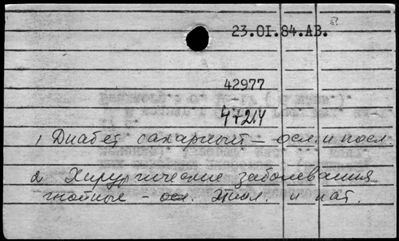 23.01.84.АВ.
42977
47214
1 Диабет сахарный – осл. и посл.
2 Хирургические заболевания
гнойные – осл. этиол. и пат.